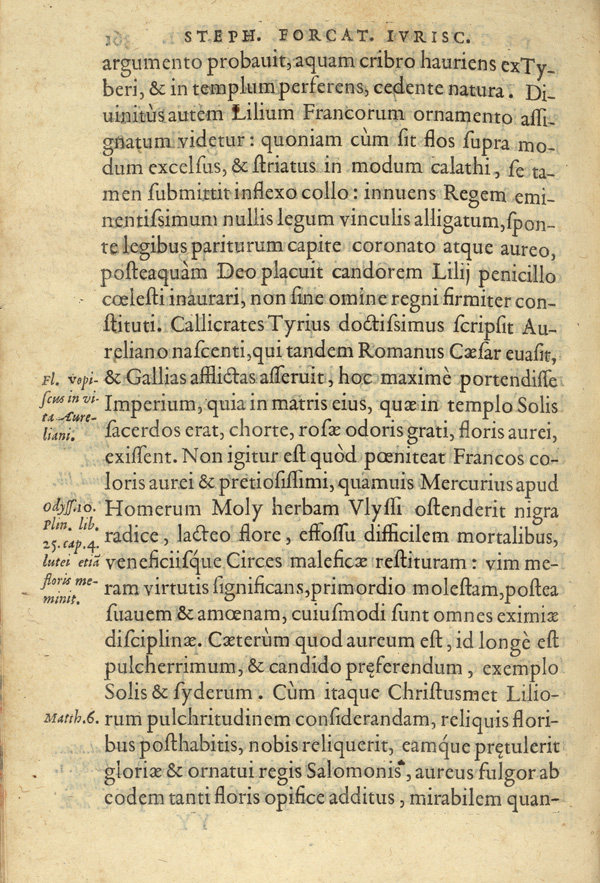 361 STEPH. FORCAT. IVRISC.
argumento probauit, aquam cribro hauriens ex Ty-
beri, & in templum perferens, cedente natura. Di-
uinitùs autem Lilium Francorum ornamento aſſi-
gnatum videtur: quoniam cùm ſit flos ſupra mo-
dum excelſus, & ſtriatus in modum calathi, ſe ta-
men ſubmittit inflexo collo: innuens Regem emi-
nentiſſimum nullis legum vinculis alligatum, ſpon-
te legibus pariturum capite coronato atque aureo,
poſteaquàm Deo placuit candorem Lilij penicillo
cœleſti inaurari, non ſine omine regni firmiter con-
ſtituti. Callicrates Tyrius doctiſſimus ſcripſit Au-
reliano naſcenti, qui tandem Romanus Cæſar euaſit,
& Gallias afflictas aſſeruit, hoc maximè portendiſſe
Imperium, quia in matris eius, quæ in templo Solis
ſacerdos erat, chorte, roſæ odoris grati, floris aurei,
exiſſent. Non igitur eſt quòd pœniteat Francos co-
loris aurei & pretioſiſſimi, quamuis Mercurius apud
Homerum Moly herbam Vlyſſi oſtenderit nigra
radice, lacteo flore, effoſſu difficilem mortalibus,
veneficiiſq́ue Circes maleficæ reſtituram: vim me-
ram virtutis ſignificans, primordio moleſtam, poſtea
ſuauem & amœnam, cuiuſmodi ſunt omnes eximiæ
diſciplinæ. Cæterùm quod aureum eſt, id longè eſt
pulcherrimum, & candido pręferendum, exemplo
Solis & ſyderum. Cùm itaque Chriſtusmet Lilio-
rum pulchritudinem conſiderandam, reliquis flori-
bus poſthabitis, nobis reliquerit, eamq́ue prętulerit
gloriæ & ornatui regis Salomonis, aureus fulgor ab
eodem tanti floris opifice additus, mirabilem quan-
Fl. vopi-
ſcus in vi-
ta Aure-
liani.
odyſſ.10.
Plin. lib.
25. cap. 4.
lutei etiā
floris me-
minit.
Matth.6.